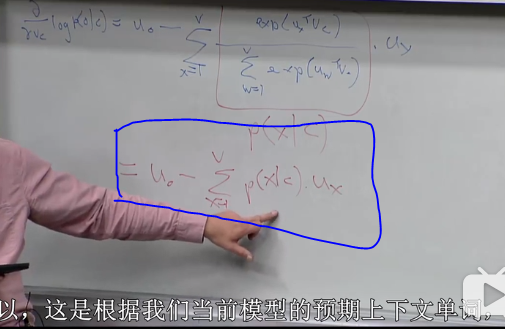 ∂/∂v_c log p(o|c) = u_o - Σ_{x=1}^{V} exp(u_x^T v_c) / Σ_{w=1}^{V} exp(u_w^T v_c) · u_x
p(x|c)
= u_o - Σ_{x=1}^{V} p(x|c) · u_x
以，这是根据我们当前模型的预期上下文单词，